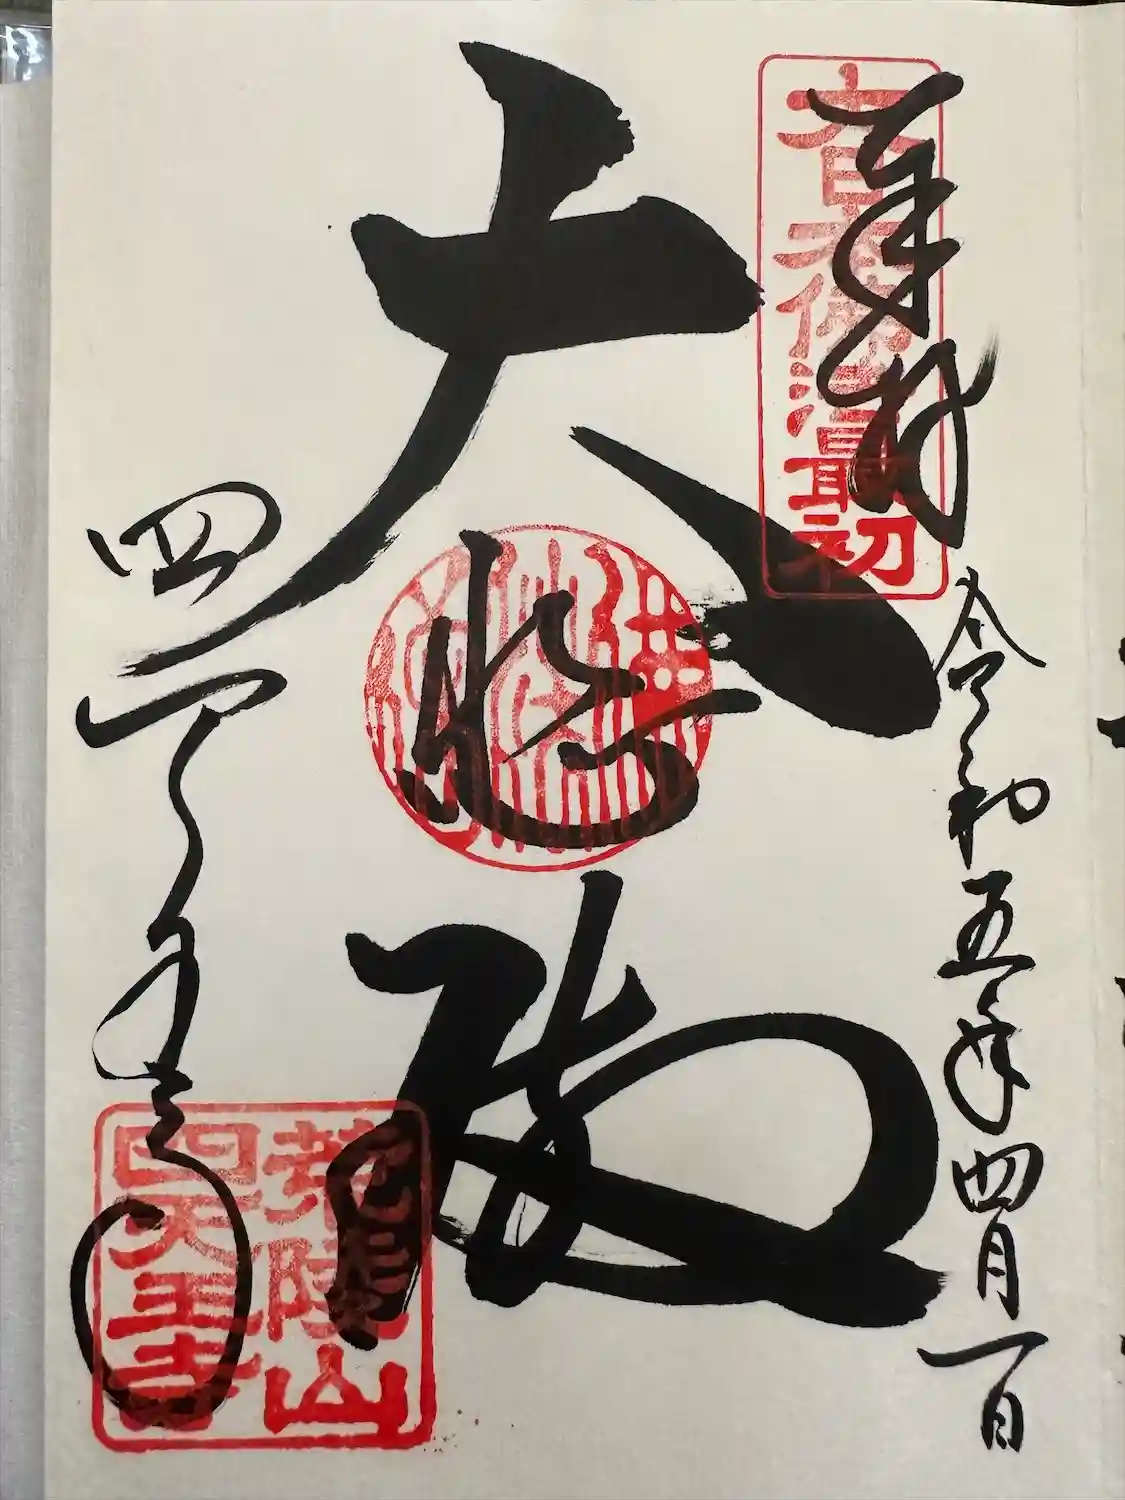 奉拝
大日本佛法最初
令和五年四月一日
大悲殿
四天王寺
荒陵山
四天王寺